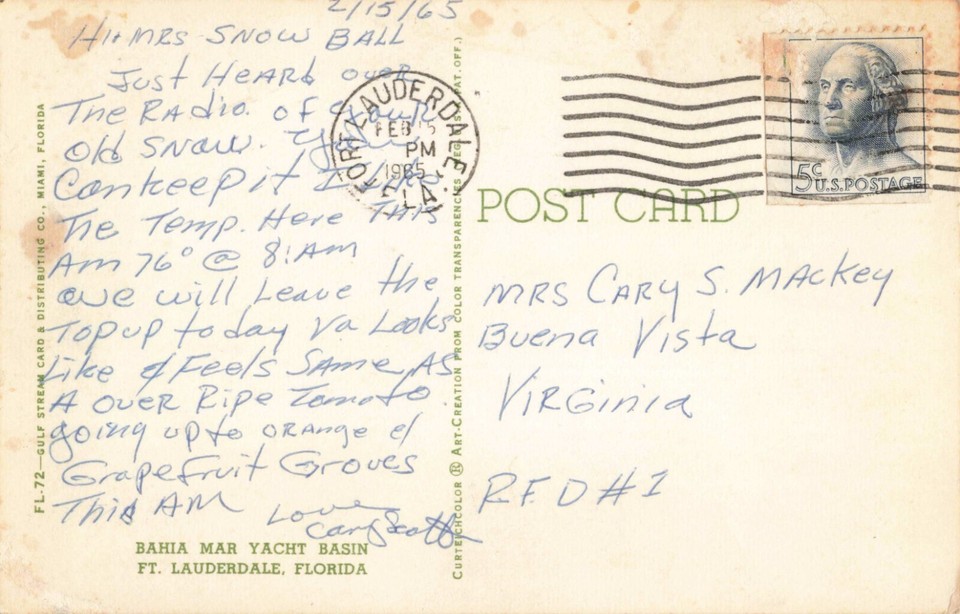 2/15/65
Hi MRS SNOW BALL
Just Heard over
The Radio. of your
old SNOW. You
Can keep it
The Temp. Here This
Am 76° @ 8:AM
we will Leave the
Top up to day Va Looks
Like & Feels Same AS
A over Ripe Tomato.
going up to orange &
Grapefruit Groves
This AM
Love
Cary Scott
BAHIA MAR YACHT BASIN
FT. LAUDERDALE, FLORIDA
FL-72—GULF STREAM CARD & DISTRIBUTING CO., MIAMI, FLORIDA
CURTEICHCOLOR ® ART-CREATION FROM COLOR TRANSPARENCIES REG. U.S. PAT. OFF.)
FORT LAUDERDALE
FEB 15
PM
1965
FLA.
5c
U.S. POSTAGE
POST CARD
MRS CARY S. MACKEY
Buena Vista
VIRGinia
R.F.D #1